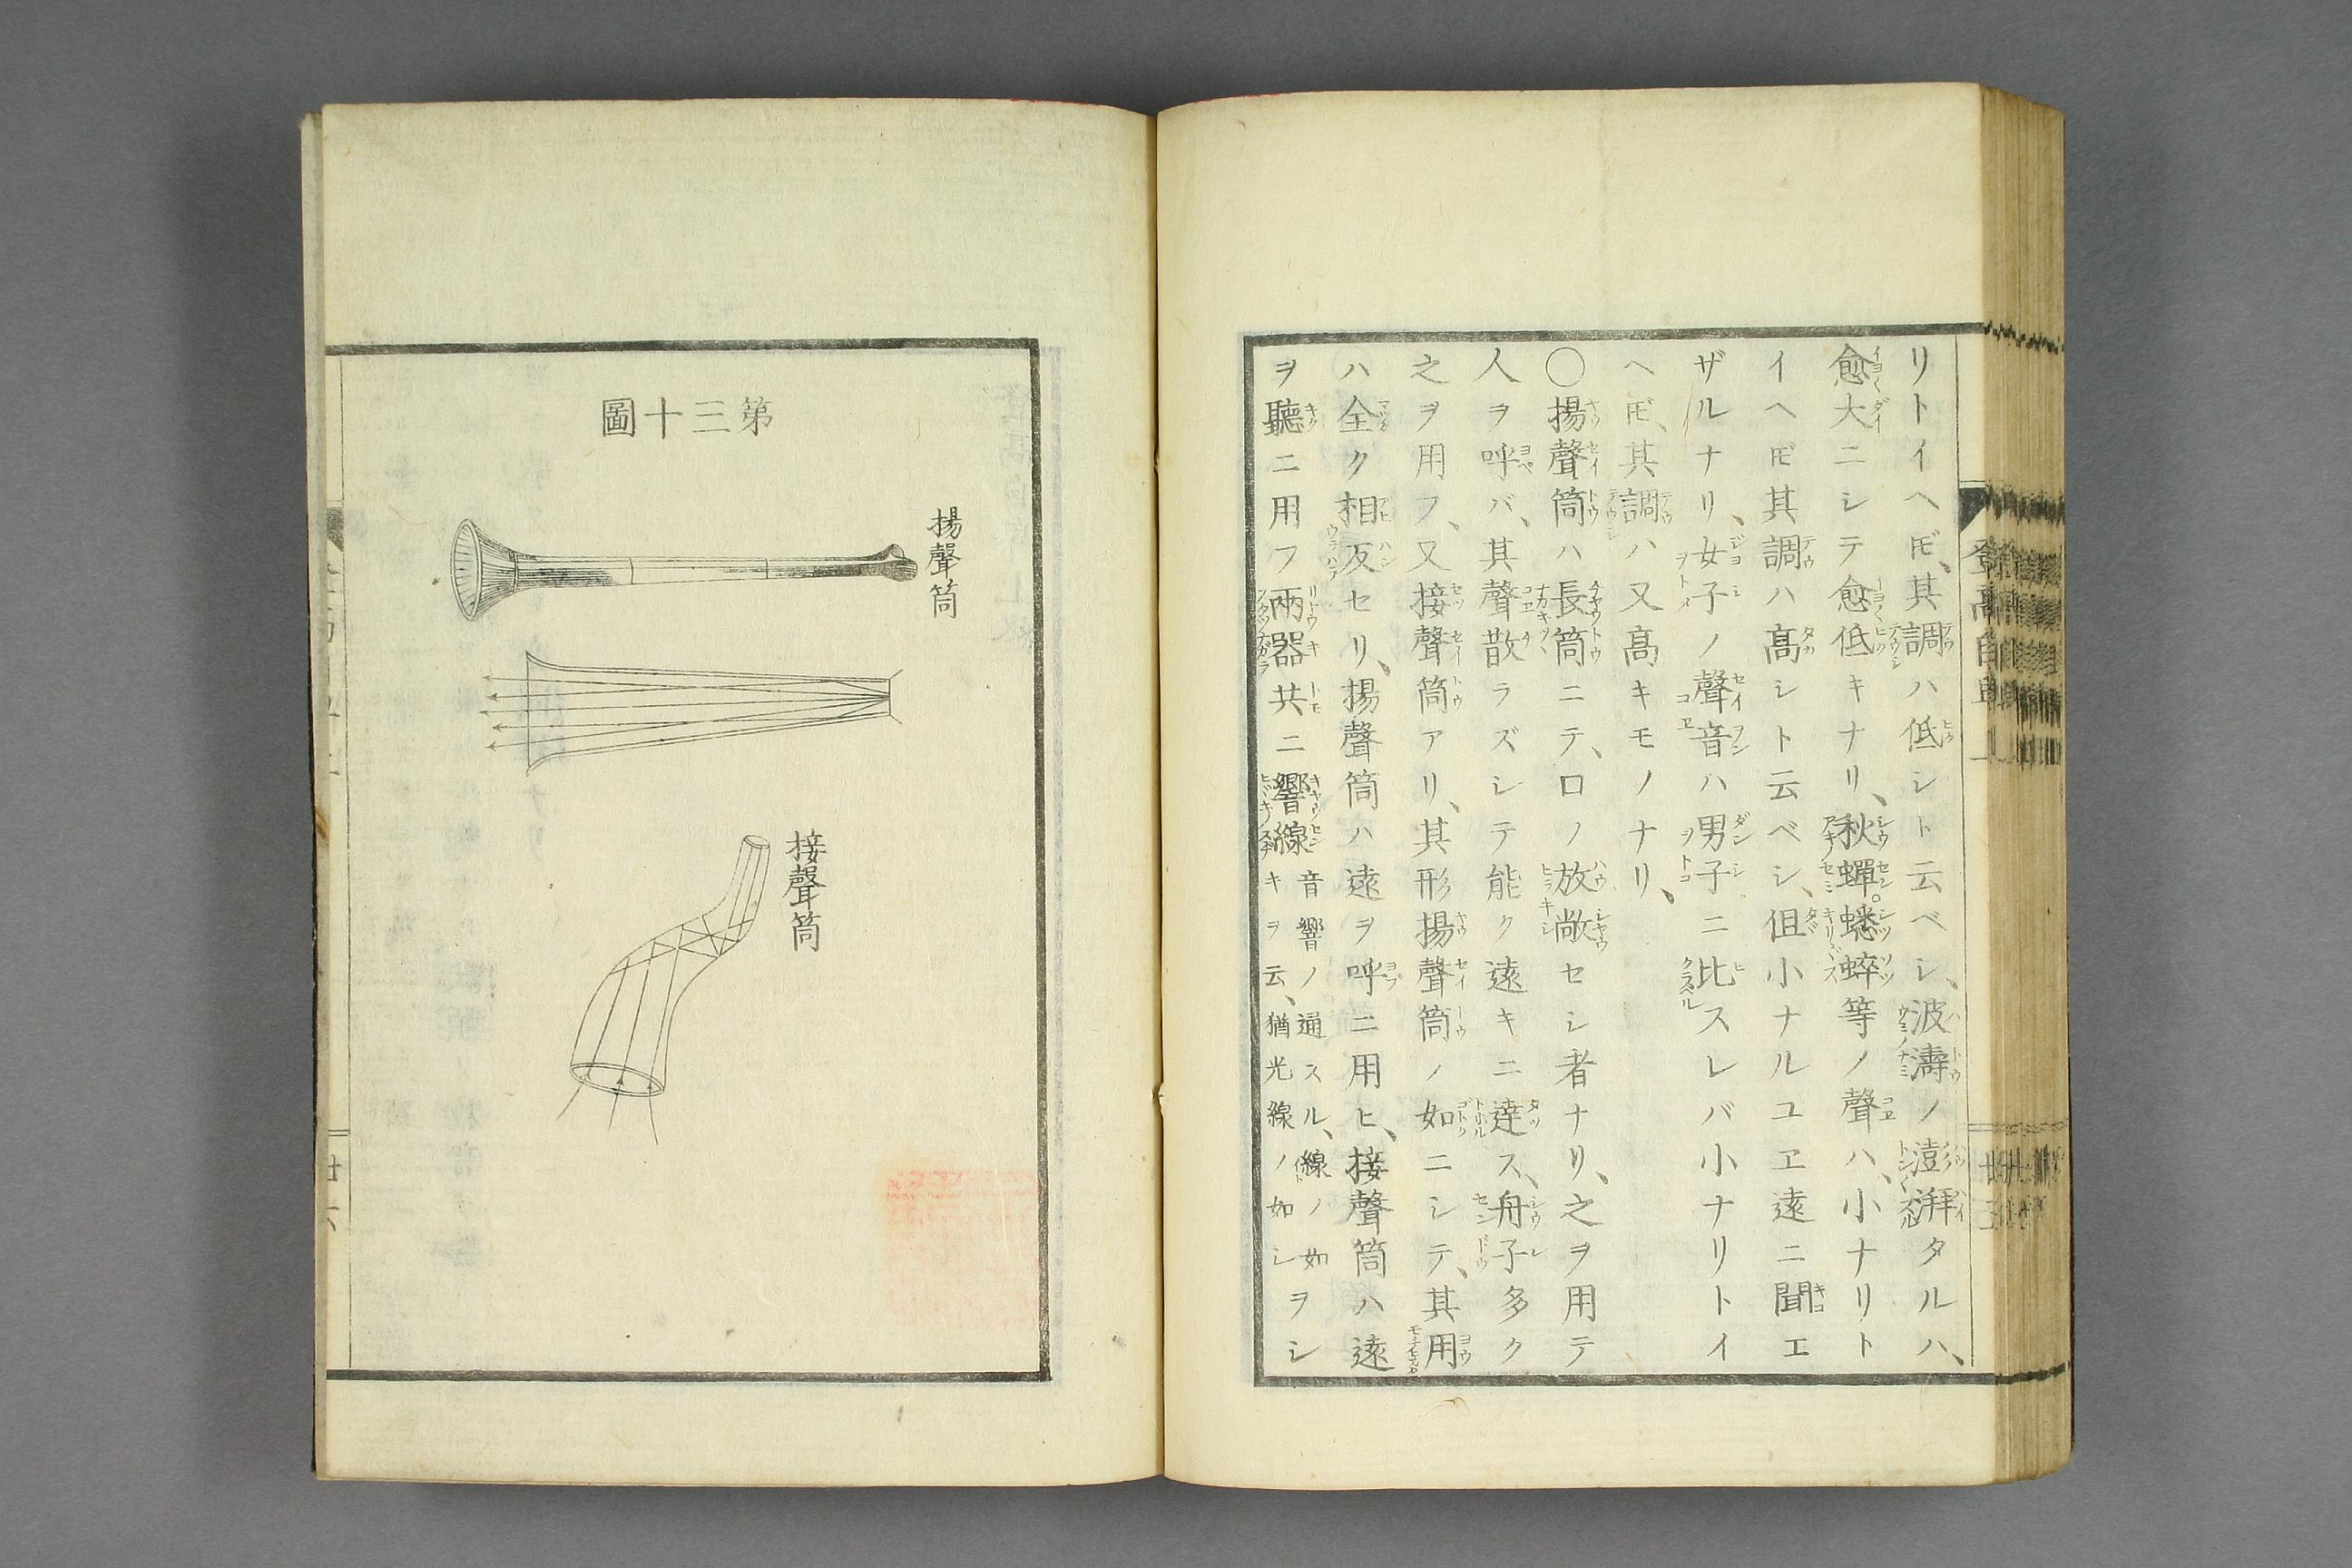 リトイヘ𪜈、其調ハ低シト云ベシ、波濤ノ澎湃タルハ、
愈大ニシテ愈低キナリ、秋蟬。蟋蟀等ノ聲ハ、小ナリト
イヘ𪜈其調ハ髙シト云ベシ、伹小ナルユヱ遠ニ聞エ
ザルナリ、女子ノ聲音ハ男子ニ比スレバ小ナリトイ
ヘ𪜈、其調ハ又髙キモノナリ、
〇揚聲筒ハ長筒ニテ、口ノ放敞セシ者ナリ、之ヲ用テ
人ヲ呼バ、其聲散ラズシテ能ク遠キニ達ス、舟子多ク
之ヲ用フ、又接聲筒アリ、其形揚聲筒ノ如ニシテ、其用
ハ全ク相反セリ、揚聲筒ハ遠ヲ呼ニ用ヒ、接聲筒ハ遠
ヲ聽ニ用フ兩器共ニ響線音響ノ通スル、線ノ如キヲ云、猶光線ノ如シヲシ
登髙自卑
第三十圖
揚聲筒
接聲筒